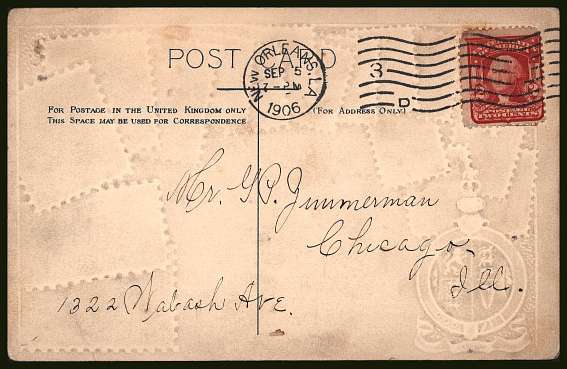 POST CARD
NEW ORLEANS, LA
SEP 5
7-PM
1906
3
D
FOR POSTAGE IN THE UNITED KINGDOM ONLY
THIS SPACE MAY BE USED FOR CORRESPONDENCE
(FOR ADDRESS ONLY)
TWO CENTS
Mr. G.P. Zimmerman
Chicago,
Ill.
1322 Wabash Ave.